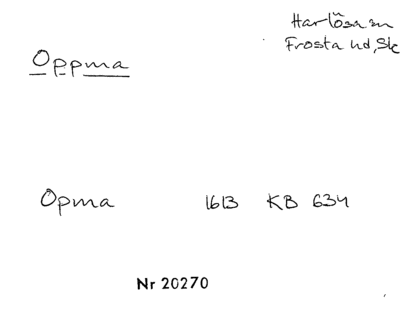 Harlösa sn
Frosta hd, Sk
Oppma
Opma 1613 KB 634
Nr 20270